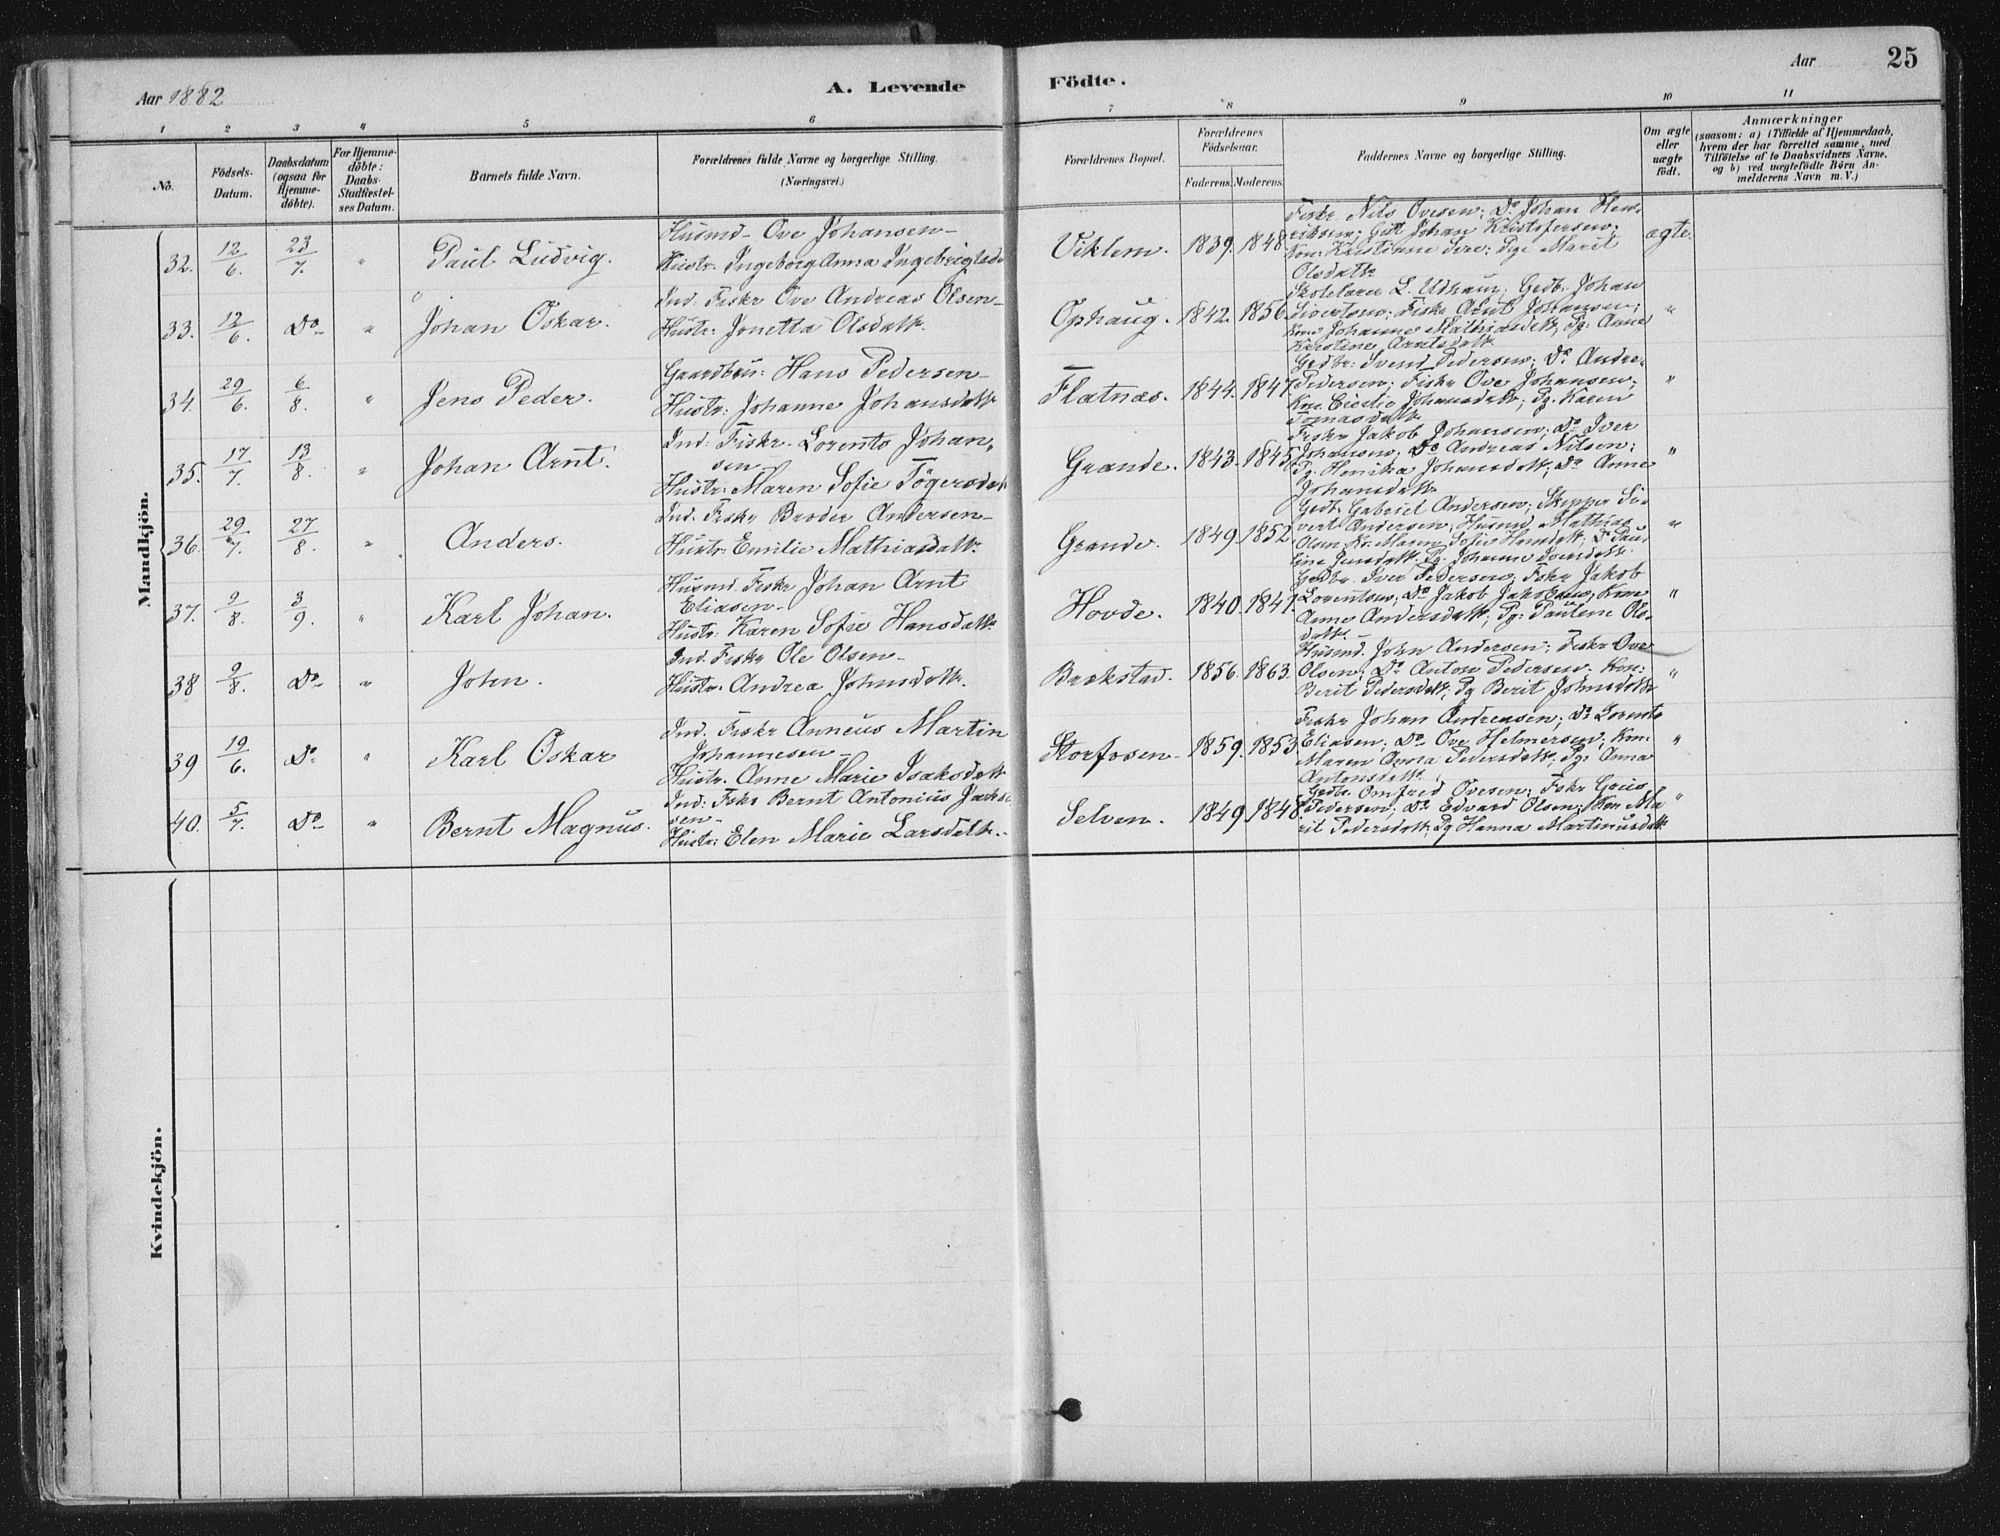 Aar 1882
A. Levende
Födte.
Aar
25
1 2 3 4 5 6 7 8 9 10 11
No.
Födsels-
Datum.
Daabsdatum
(ogsaa for
Hjemme-
döbte).
For Hjemme-
döbte:
Daabs-
Stadfæstel-
ses Datum.
Barnets fulde Navn.
Forældrenes fulde Navne og borgerlige Stilling.
(Næringsvei.)
Forældrenes Bopæl.
Forældrenes
Födselsaar.
Faderens. Moderens.
Faddernes Navne og borgerlige Stilling.
Om ægte
eller
uægte
födt.
Anmærkninger
(saasom: a) i Tilfælde af Hjemmedaab,
hvem der har forrettet samme, med
Tilföielse af to Daabsvidners Navne,
og b) ved uægtefödte Börn An-
melderens Navn m. V.)
Mandkjön.
32. 12/6. 23/7. " Paul Ludvig.
Husmd. Ove Johansen
Hustr. Ingeborg Anna Ingebrigtsd.
Viklem. 1839. 1848.
Fiskr. Nils Ovesen; Do Johan Hen-
riksen; Gdt Johan Kristofersen;
Kon. Kristianne Sere; Pge Marit
Olsdatr
ægte.
33. 12/6. Do " Johan Oskar.
Ind. Fiskr Ove Andreas Olsen
Hustr: Jonetta Olsdatr.
Ophaug. 1842. 1856.
Skolelærer L. Udhaug; Gedb. Johan
Sivertsen; Fiskr Arnt Johansen;
Kone Johanne Mathiasdatr; Pg. Anne
Kirstine Arntsdatr
"
34. 29/6. 6/8. " Jens Peder.
Gaardbru: Hans Pedersen
Hustr: Johanne Johansdatr
Flatnæs. 1844. 1847.
Gedbr: Svend Pedersen; Do Andre-
Pedersen; Fiskr Ove Johansen;
Kone Cicilie Johansdatr; Pg. Karen
Tomasdatr
"
35. 17/7. 13/8. " Johan Arnt.
Ind: Fiskr. Lorents Johan-
sen
Hustr: Maren Sofie Tögersdatr
Grande. 1843. 1845.
Fiskr Jakob Johansen; Do Iver
Johansen; Do Andreas Nilsen;
Pg. Henrika Johansdatr; Do Anne
Johansdatr
"
36. 29/7. 27/8. " Anders.
Ind. Fiskr Broder Andersen
Hustr: Emilie Mathiasdatr.
Grande. 1849. 1852.
Gedb. Gabriel Andersen; Skipper Si-
vert Andersen; Husmd. Mathias
Olsen Ko. Maren Sofie Hansdatr; Do Pau-
line Jensdatr. Pg. Johanne Iversdatr.
"
37. 9/8. 3/9. " Karl Johan.
Husmd Fiskr Johan Arnt
Eliasen
Hustr: Karen Sofie Hansdatr.
Hovde. 1840. 1841.
Gedbr. Iver Pedersen; Fskr Jakob
Lorentsen; Do Jakob Jakobsen; Kone
Anne Andersdatr; Pg: Pauline Ols-
datr.
"
38 9/8. Do " John.
Ind. Fiskr Ole Olsen
Hustr. Andrea Johnsdatr.
Brekstad. 1856. 1863.
Husmd. John Andersen; Fiskr Ove
Olsen; Do Anton Pedersen; Kon:
Berit Pedersdatr; Pg Berit Johnsdatr
"
39 19/6. Do " Karl Oskar
Ind. Fiskr Anneus Martin
Johannesen
Hustr. Anne Marie Isaksdatr
Storfosen 1859. 1853.
Fiskr Johan Andreasen; Do Lorents
Eliasen; Do Ove Helmersen; Kon.
Maren Anna Pedersdatr; Pg: Anna
Antonsdatr.
"
40. 5/7. Do " Bernt Magnus.
Ind: Fskr Bernt Antonius Jakob
sen
Hustr: Elen Marie Larsdatr.
Selven. 1849. 1848.
Gedb. Omfred Ovesen; Fskr Greis
Pedersen; Do Edvard Olsen; Kon Ma-
rit Pedersdatr; Pg Hanna Martinusdatr
"
Kvindekjön.